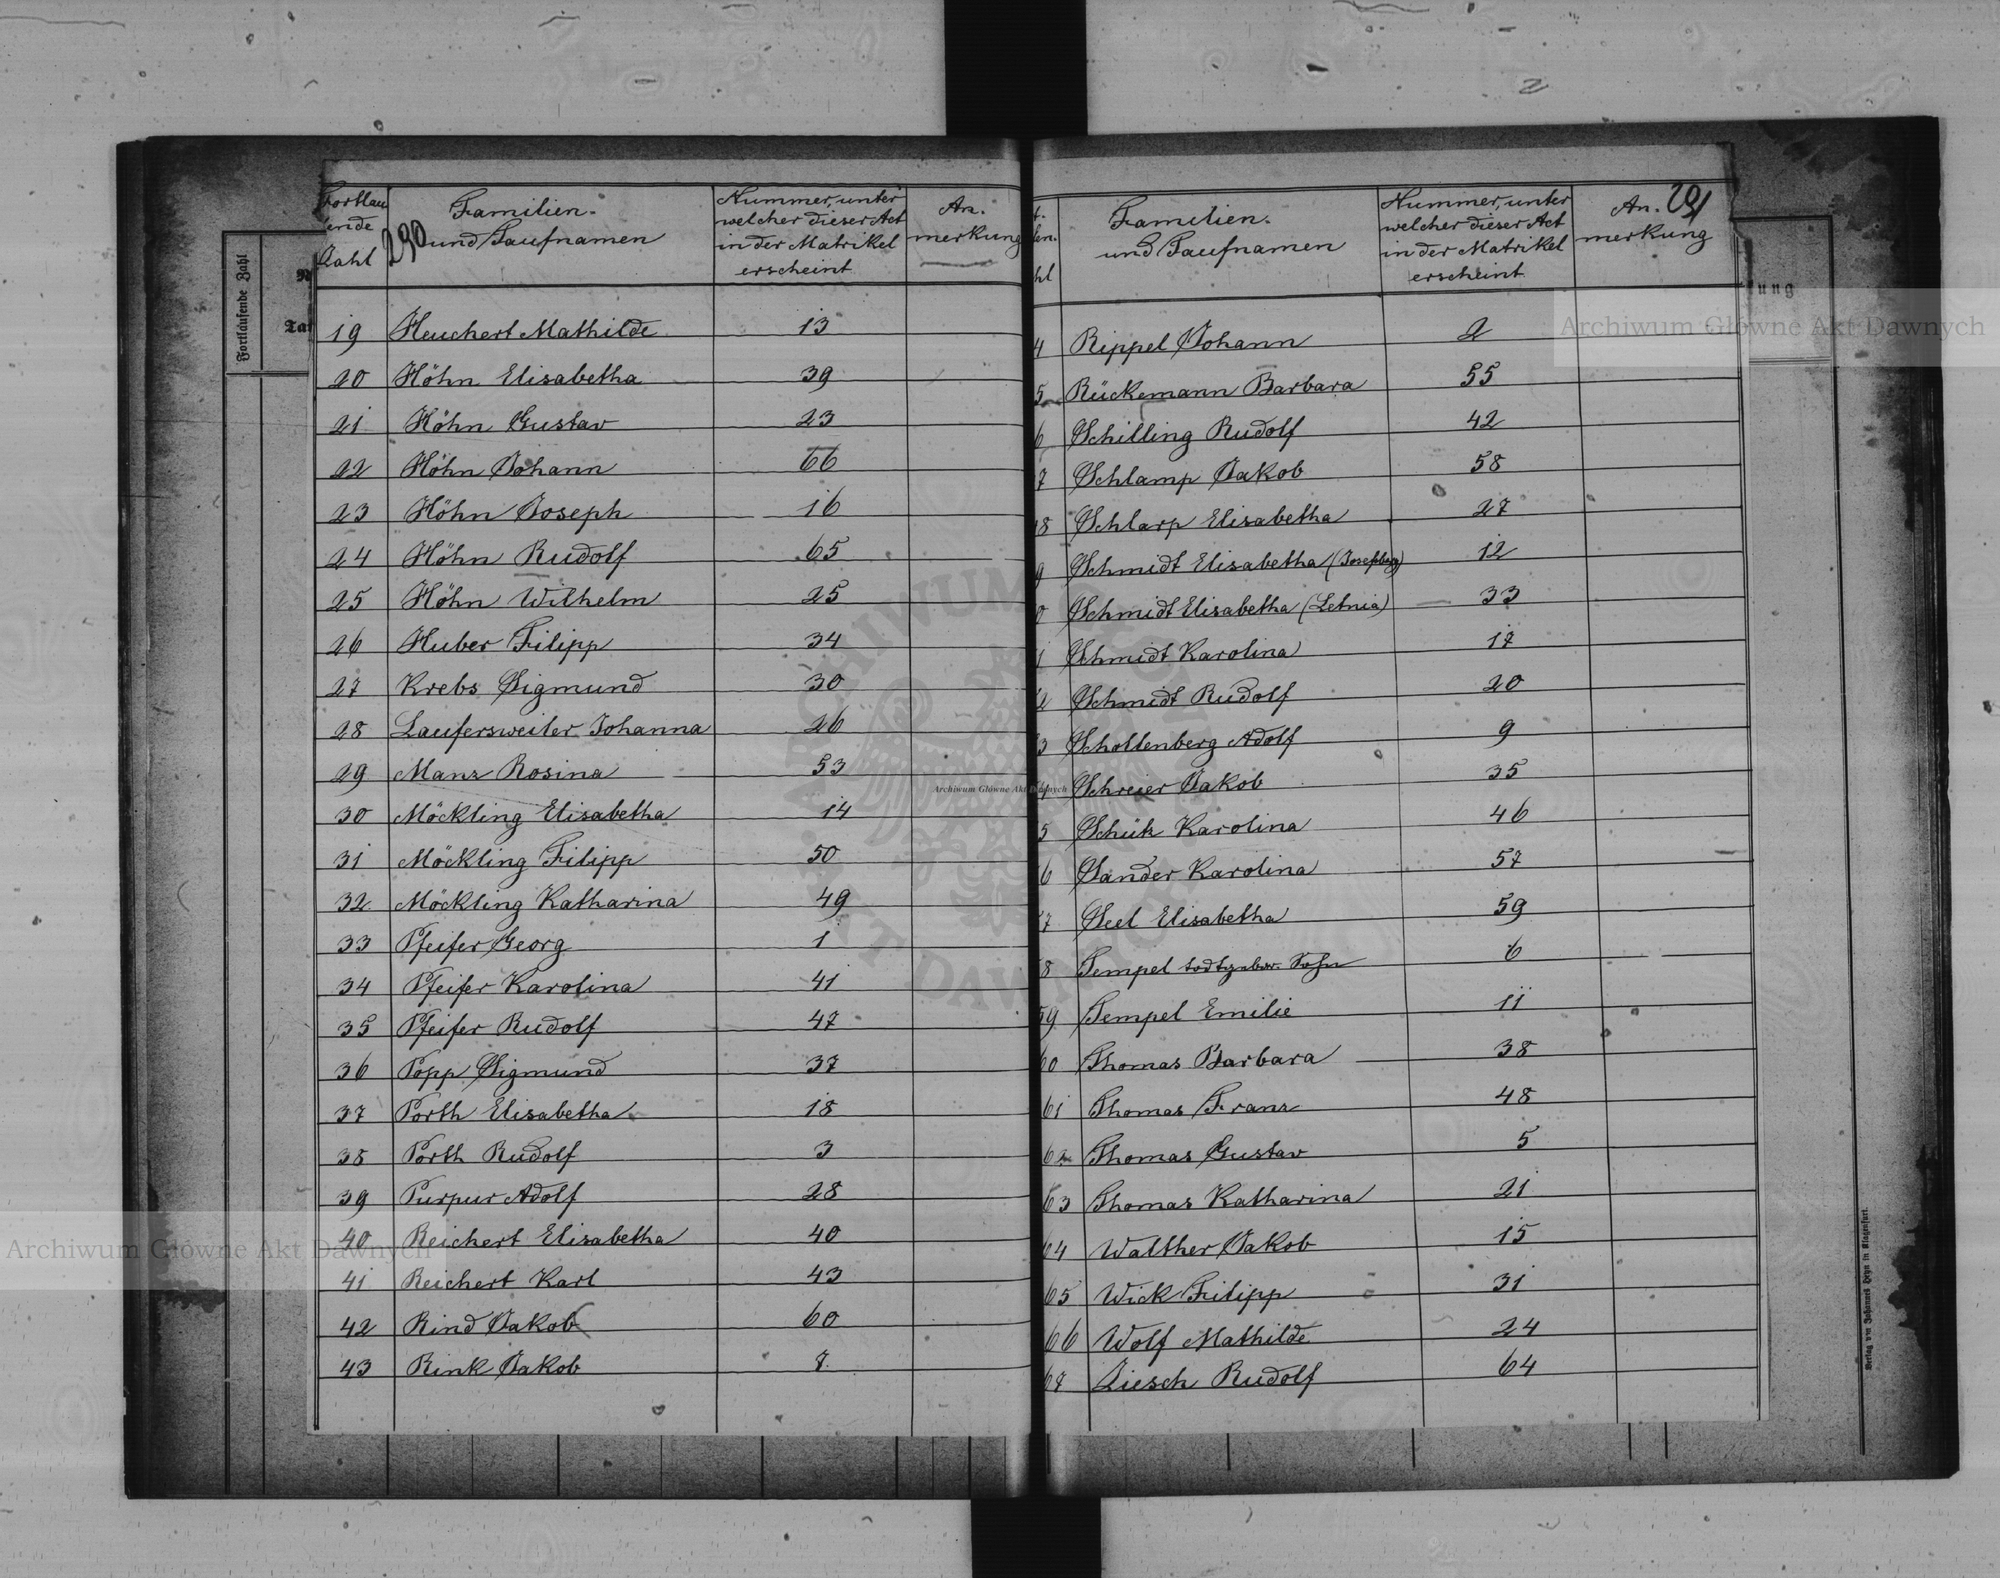 Fortlau
fende
Zahl
290
Familien-
und Taufnamen
Nummer, unter
welcher dieser Act
in der Matrikel
erscheint
An-
merkung
19 Heuchert Mathilde 13
20 Höhn Elisabetha 39
21 Höhn Gustav 23
22 Höhn Johann 66
23 Höhn Joseph 16
24 Höhn Rudolf 65
25 Höhn Wilhelm 25
26 Huber Filipp 34
27 Krebs Sigmund 30
28 Laufersweiler Johanna 26
29 Manz Rosina 53
30 Möckling Elisabetha 14
31 Möckling Filipp 50
32 Möckling Katharina 49
33 Pfeifer Georg 1
34 Pfeifer Karolina 41
35 Pfeifer Rudolf 47
36 Popp Sigmund 37
37 Porth Elisabetha 18
38 Porth Rudolf 3
39 Purpur Adolf 28
40 Reichert Elisabetha 40
41 Reichert Karl 43
42 Rind Jakob 60
43 Rink Jakob 7
t.
fen.
hl
Familien-
und Taufnamen
Nummer, unter
welcher dieser Act
in der Matrikel
erscheint
An-
merkung
291
4 Rippel Johann 2
5 Rückemann Barbara 55
6 Schilling Rudolf 42
7 Schlamp Jakob 58
8 Schlarp Elisabetha 27
9 Schmidt Elisabetha (Josephberg) 12
0 Schmidt Elisabetha (Letnia) 33
1 Schmidt Karolina 17
2 Schmidt Rudolf 20
3 Schollenberg Adolf 9
4 Schreier Jakob 35
5 Schük Karolina 46
6 Sander Karolina 57
7 Seel Elisabetha 59
8 Tempel todtgebor. Sohn 6
59 Tempel Emilie 11
60 Thomas Barbara 38
61 Thomas Franz 48
62 Thomas Gustav 5
63 Thomas Katharina 21
64 Walther Jakob 15
65 Wick Filipp 31
66 Wolf Mathilde 24
67 Ziesch Rudolf 64
Fortlaufende Zahl
N
Tau
kung
Verlag von Johannes Heyn in Klagenfurt.
Archiwum Główne Akt Dawnych
Archiwum Główne Akt Dawnych
Archiwum Główne Akt Dawnych